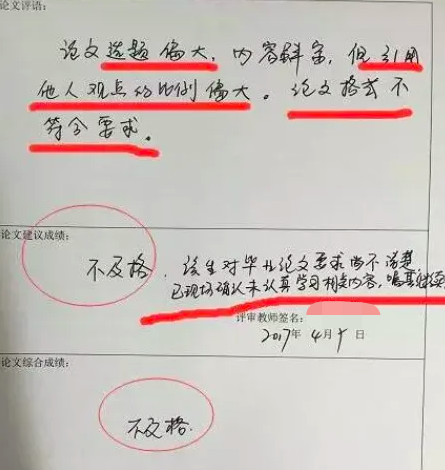 论文评语:
论文选题偏大,内容丰富,但引用
他人观点的比例偏大。论文格式不
符合要求。
论文建议成绩:
不及格.该生对毕业论文要求尚不清楚
已现场确认未认真学习相关内容,嘱其继续
评审教师签名:
2017年4月 日
论文综合成绩:
不及格.